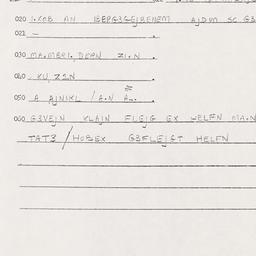 020 I.KOB AN IBERGSGEJRENEM AJDM SC GB
021 —
030 MA.MBRI, DERN ZI.N
040 . KU, ZIN
050 A AJNIKL / A.N A..
060 G3VEJN KLAJN FLEJG EX WELFN MA.N
TAT3 / HOBEX G3FLEJGT HELFN